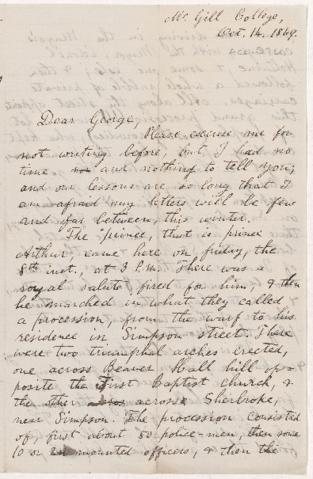 Mc Gill College,
Oct. 14. 1869.
Dear George,
Please excuse me for
not writing before, but I had no
time and nothing to tell you,
and our lessons are so long that I
am afraid my letters will be few
and far between, this winter.
The prince, that is prince
Arthur, came here on friday, the
8th inst., at 3 P.M. There was a
royal salute, fired for him, & then
he marched in what they called
a procession, from the warf to his
residence in Simpson street. There
were two triumphal arches erected,
one across Beaver Hall hill op-
posite the First Baptist church, &
the other across Sherbroke,
near Simpson. The procession consisted
of first about 50 police-men, then some
10 or mounted officers, & then the